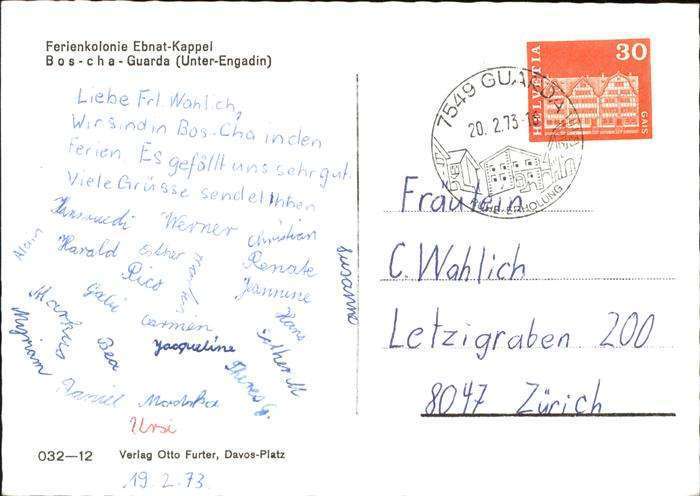 Ferienkolonie Ebnat-Kappel
Bos-cha-Guarda (Unter-Engadin)
Liebe Frl. Wahlich,
Wir sind in Bos-Cha in den
Ferien. Es gefällt uns sehr gut.
Viele Grüsse sendel Ihnen
Hansruedi Werner Christian
Alain Harald Esther Renate
Rico Jeannine
Gabi Susanne
Markus Carmen Hans
Myriam Bea Jacqueline Esther M
Daniel Theres G.
Ursi
032—12 Verlag Otto Furter, Davos-Platz
19.2.73.
HELVETIA
30
GAIS
7549 GUARDA
20.2.73-
ERHOLUNG
Fräulein
C. Wahlich
Letzigraben 200
8047 Zürich